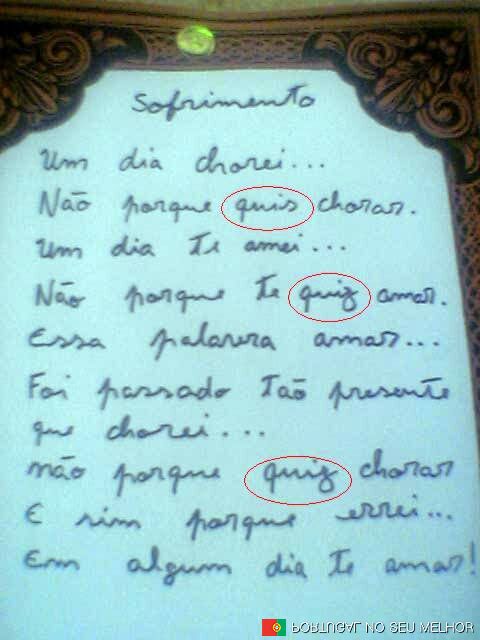 Sofrimento
Um dia chorei...
Não porque quis chorar.
Um dia te amei...
Não porque te quiz amar.
Essa palavra amar...
Foi passado Taõ presente
que chorei...
não porque quiz chorar
E sim porque errei...
Em algum dia te amar!
PORTUGAL NO SEU MELHOR